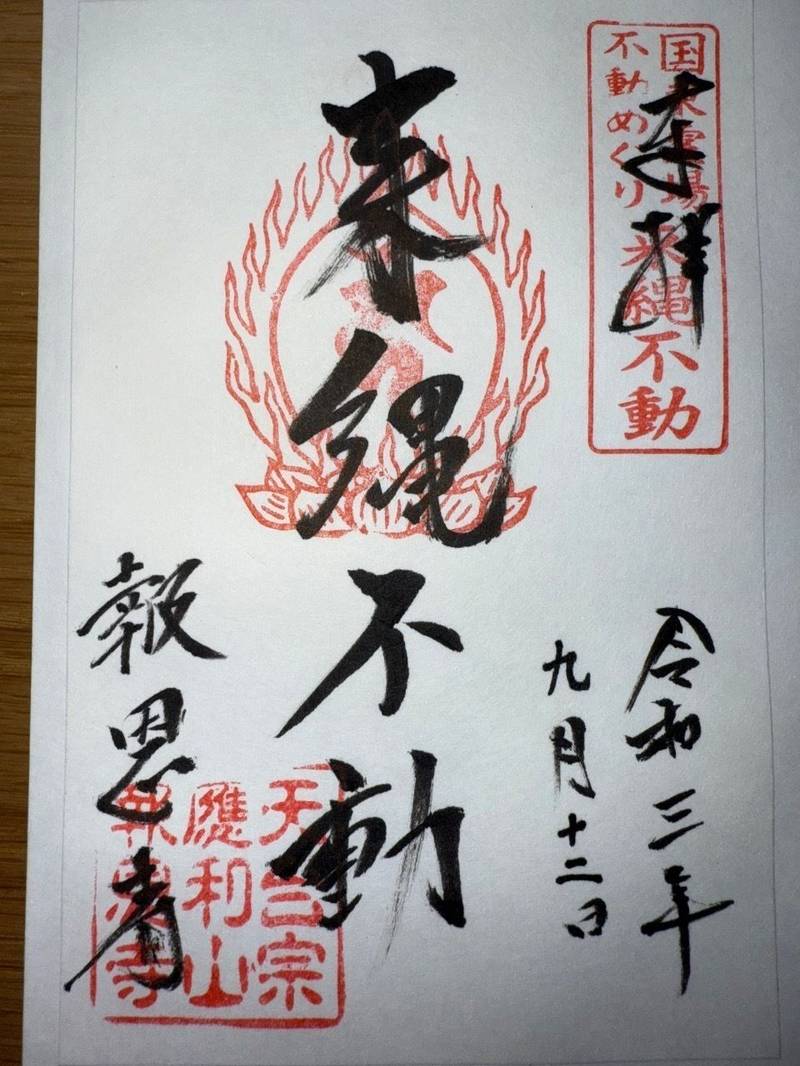 奉拝
国東霊場
不動めぐり
来縄不動
来縄不動
令和三年
九月十二日
報恩寺
天台宗
應利山
報恩寺